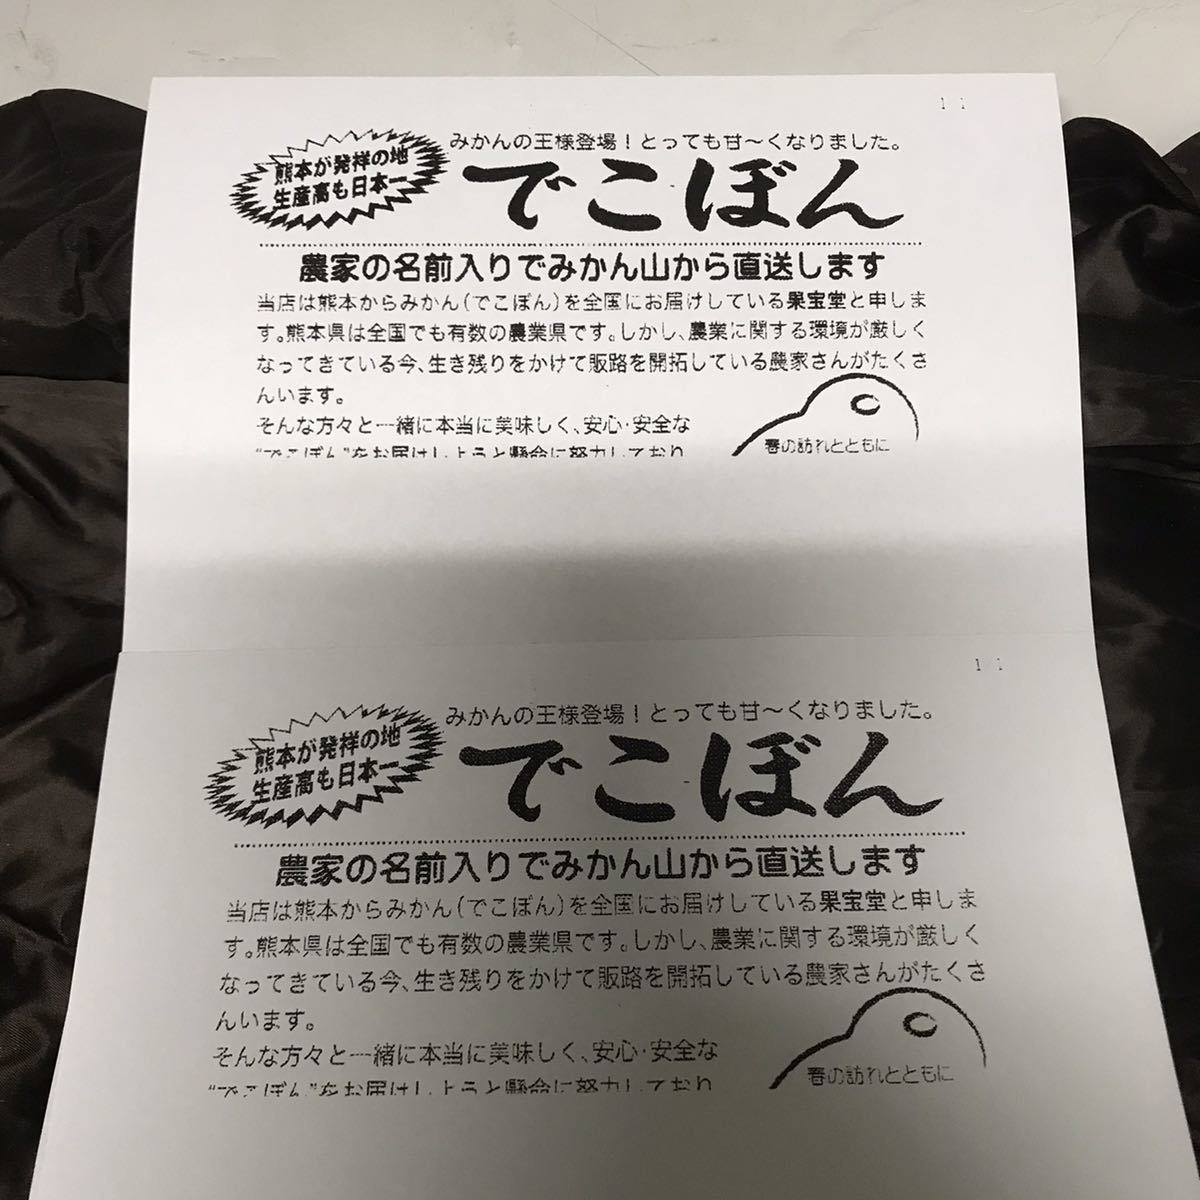 1 1
熊本が発祥の地
生産高も日本一
みかんの王様登場！とっても甘～くなりました。
でこぼん
農家の名前入りでみかん山から直送します
当店は熊本からみかん（でこぽん）を全国にお届けしている果宝堂と申しま
す。熊本県は全国でも有数の農業県です。しかし、農業に関する環境が厳しく
なってきている今、生き残りをかけて販路を開拓している農家さんがたくさ
んいます。
そんな方々と一緒に本当に美味しく、安心・安全な
“でこぽん”をお届けしようと懸命に努力しており
春の訪れとともに
1 1
熊本が発祥の地
生産高も日本一
みかんの王様登場！とっても甘～くなりました。
でこぼん
農家の名前入りでみかん山から直送します
当店は熊本からみかん（でこぽん）を全国にお届けしている果宝堂と申しま
す。熊本県は全国でも有数の農業県です。しかし、農業に関する環境が厳しく
なってきている今、生き残りをかけて販路を開拓している農家さんがたくさ
んいます。
そんな方々と一緒に本当に美味しく、安心・安全な
“でこぽん”をお届けしようと懸命に努力しており
春の訪れとともに